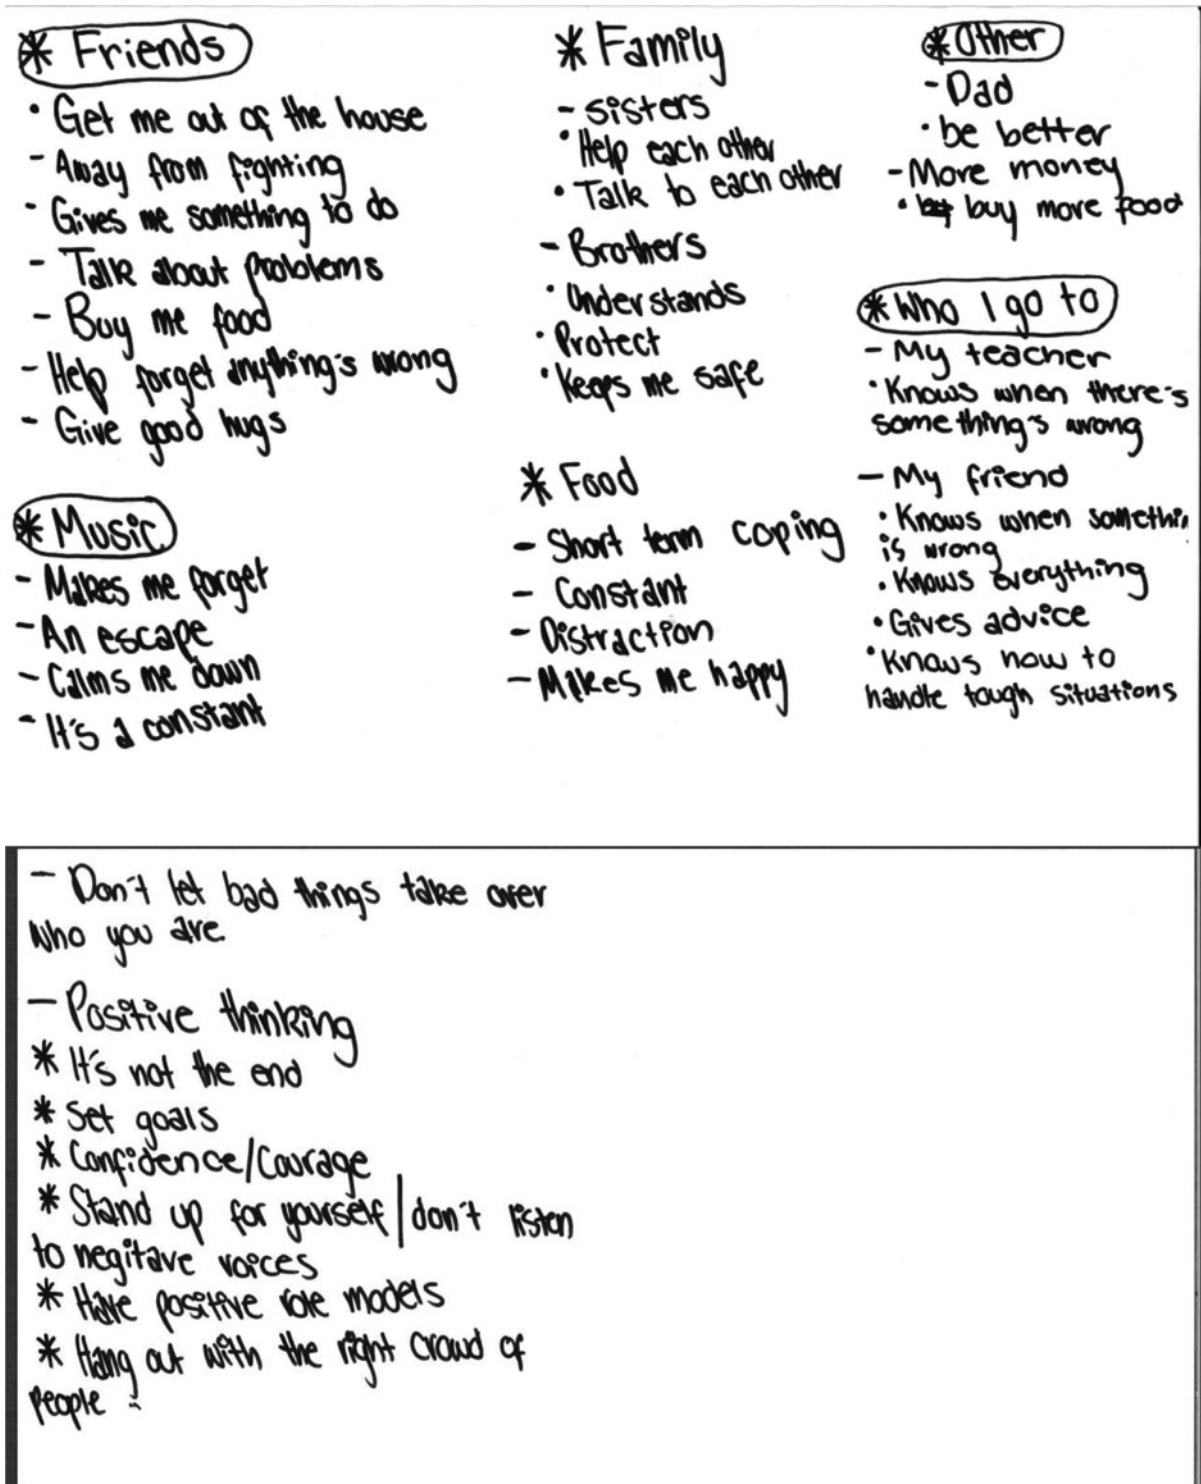 * Friends
· Get me out of the house
- Away from fighting
- Gives me something to do
- Talk about problems
- Buy me food
- Help forget anything's wrong
- Give good hugs
* Music
- Makes me forget
- An escape
- Calms me down
- It's a constant
* Family
- Sisters
· Help each other
· Talk to each other
- Brothers
· Understands
· Protect
· Keeps me safe
* Food
- Short term coping
- Constant
- Distraction
- Makes me happy
* Other
- Dad
· be better
- More money
· buy more food
* Who I go to
- My teacher
· Knows when there's
something's wrong
- My friend
· Knows when somethin
is wrong
· Knows everything
· Gives advice
· Knows how to
handle tough situations
- Don't let bad things take over
who you are
- Positive thinking
* It's not the end
* Set goals
* Confidence/Courage
* Stand up for yourself/don't listen
to negitave voices
* Have positive role models
* Hang out with the right crowd of
people :